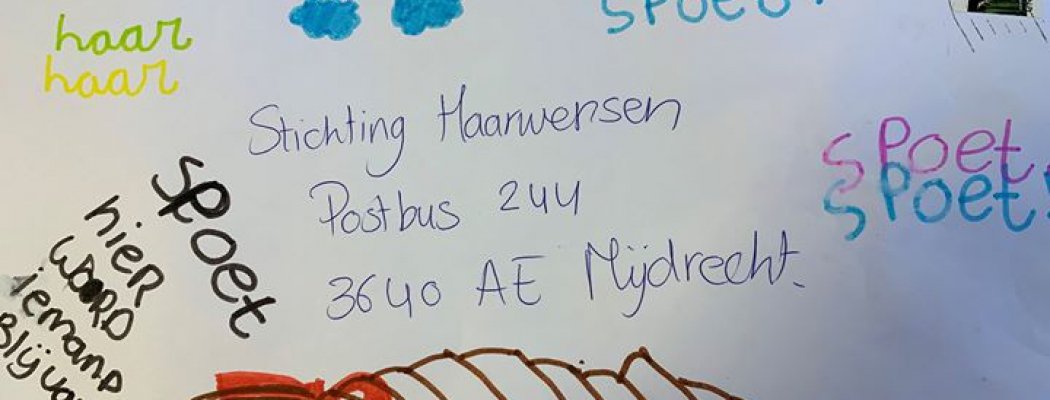 SPOEt!
haar
haar
Stichting Haarwensen
Postbus 244
3640 AE Mijdrecht.
SPOet
SPoet
SPoet!
hiER
WOORD
iemanD
Blij van